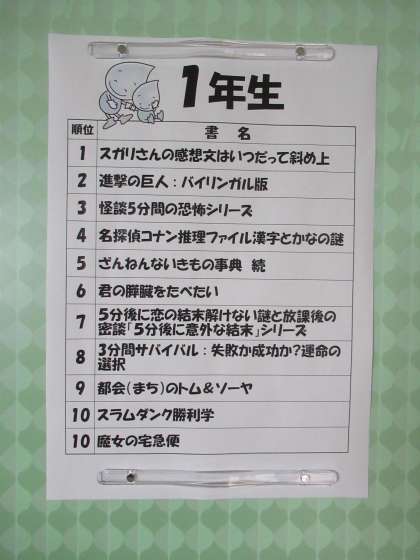 1年生
順位 書 名
1 スガリさんの感想文はいつだって斜め上
2 進撃の巨人：バイリンガル版
3 怪談5分間の恐怖シリーズ
4 名探偵コナン推理ファイル漢字とかなの謎
5 ざんねんないきもの事典 続
6 君の膵臓をたべたい
7 5分後に恋の結末解けない謎と放課後の
密談「5分後に意外な結末」シリーズ
8 3分間サバイバル：失敗か成功か?運命の
選択
9 都会(まち)のトム&ソーヤ
10 スラムダンク勝利学
10 魔女の宅急便